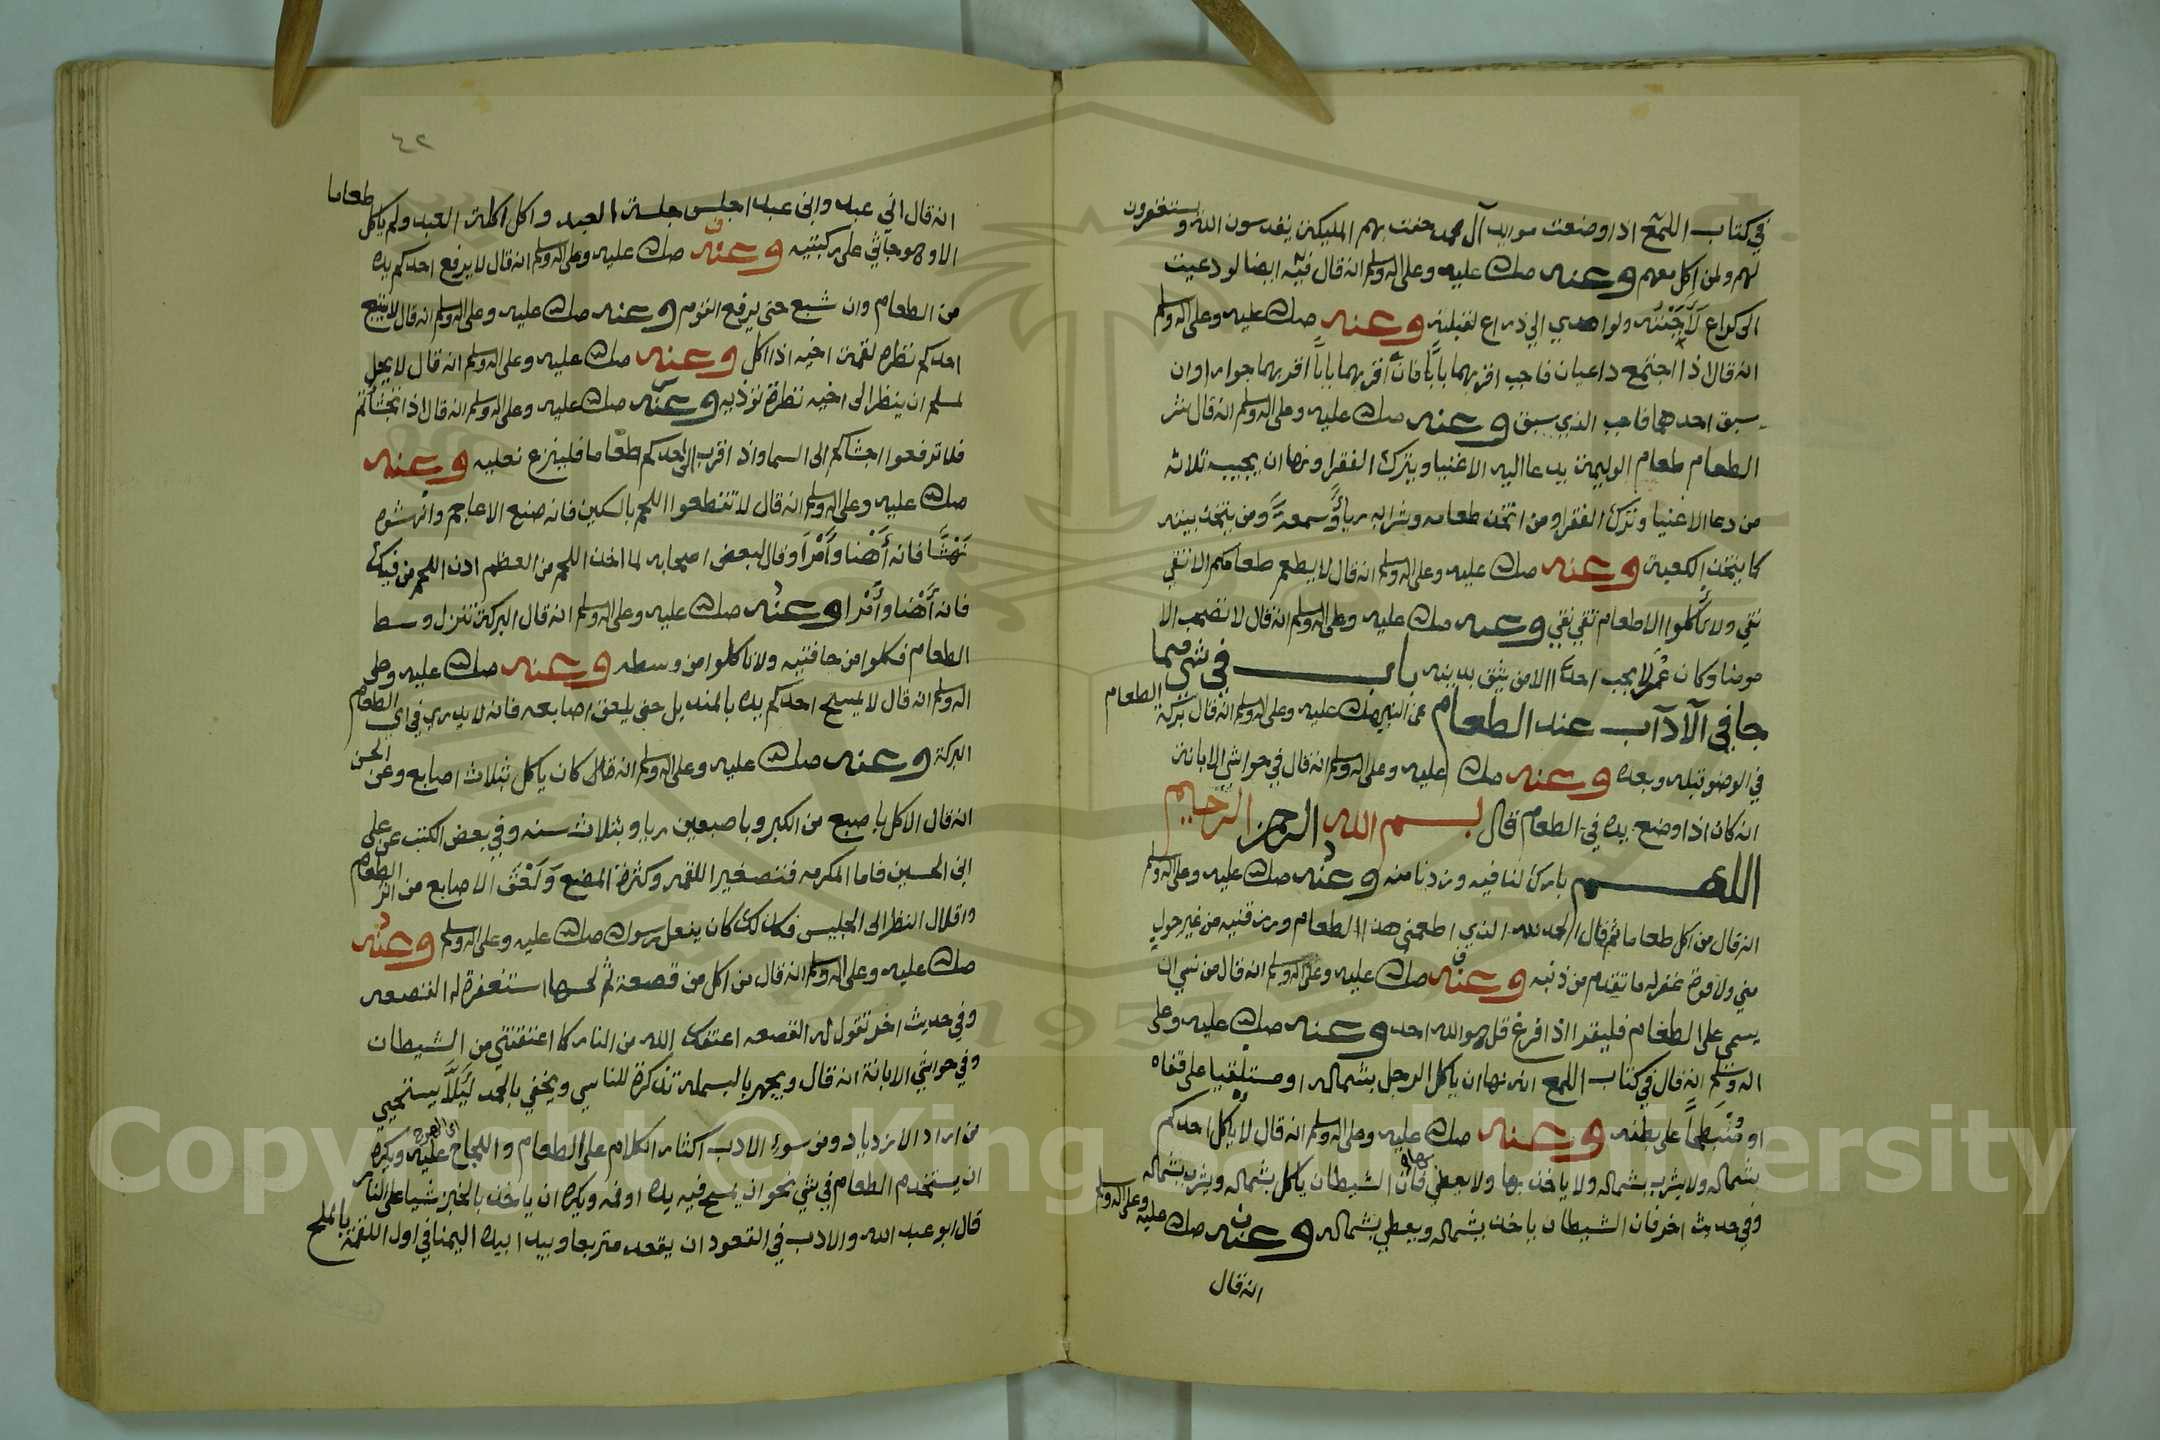 في كتاب اللمع اذا وضعت موايد آل محمد حفت بهم المليكة يقدسون الله ويستغفرون
لهم ولمن اكل معهم وعنه صلى الله عليه وعلى اله وسلم انه قال فيه ايضا لو دعيت
الى كراع لأجبته ولو اهدي الي ذراع لقبلته وعنه صلى الله عليه وعلى اله وسلم
انه قال اذا اجتمع داعيان فاجب اقربهما بابًا فان اقربهما بابًا اقربهما جوارا وان
سبق احدهما فاجب الذي سبق وعنه صلى الله عليه وعلى اله وسلم انه قال شر
الطعام طعام الوليمة يدعا اليه الاغنيا ويترك الفقرا ونها ان يجيب ثلاثه
من دعا الاغنيا وترك الفقرا ومن اتخذ طعامه وشرابه رياءً وسمعةً ومن يتخذ بيته
كما يتخذ الكعبة وعنه صلى الله عليه وعلى اله وسلم انه قال لا يطعم طعامكم الا تقي
نقي ولا تأكلوا الا طعام تقي نقي وعنه صلى الله عليه وعلى اله وسلم انه قال لا تصحب الا
مومنا وكان عمر لا يجب احدا الا من يثق بدينه باب في شي مما
جا في الآداب عند الطعام عن النبي صلى الله عليه وعلى اله وسلم انه قال بركة الطعام
في الوضو قبله وبعده وعنه صلى الله عليه وعلى اله وسلم انه قال في حواشي الابانة
انه كان اذا وضع يده في الطعام قال بسم الله الرحمن الرحيم
اللهم بارك لنا فيه وزدنا منه وعنه صلى الله عليه وعلى اله وسلم
انه قال من اكل طعاما ثم قال الحمد لله الذي اطعمني هذا الطعام ورزقنيه من غير حول
مني ولا قوة غفر له ما تقدم من ذنبه وعنه صلى الله عليه وعلى اله وسلم انه قال من نسي ان
يسمي على الطعام فليقرا اذا فرغ قل هو الله احد وعنه صلى الله عليه وعلى
اله وسلم انه قال في كتاب اللمع انه نها ان ياكل الرجل بشماله او مستلقيا على قفاه
او منبطحًا على بطنه وعنه صلى الله عليه وعلى اله وسلم انه قال لا يأكل احدكم
بشماله ولا يشرب بشماله ولا ياخذ بها ولا يعطي بها فان الشيطان ياكل بشماله ويشرب بشماله
وفي حديث اخر فان الشيطان ياخذ بشماله ويعطي بشماله وعنه صلى الله عليه وعلى اله وسلم
انه قال
٤٢
انه قال اني عبد وابن عبد اجلس جلسة العبد واكل اكلة العبد ولم ياكل طعاما
الا وهو جاثي على ركبتيه وعنه صلى الله عليه وعلى اله وسلم انه قال لا يرفع احدكم يده
من الطعام وان شبع حتى يرفع القوم وعنه صلى الله عليه وعلى اله وسلم انه قال لا يتبع
احدكم نظره لقمة اخيه اذا اكل وعنه صلى الله عليه وعلى اله وسلم انه قال لا يحل
لمسلم ان ينظر الى اخيه نظرة توذيه وعنه صلى الله عليه وعلى اله وسلم انه قال اذا تجشأتم
فلا ترفعوا اجشاكم الى السما واذا قرب الى احدكم طعاما فلينزع نعليه وعنه
صلى الله عليه وعلى اله وسلم انه قال لا تقطعوا اللحم بالسكين فانه صنيع الاعاجم وانهشوه
نهشًا فانه أهنا وأمرا وقال لبعض اصحابه لما اخذ اللحم من العظم ادن اللحم من فيك
فانه أهنا وأمرا وعنه صلى الله عليه وعلى اله وسلم انه قال البركة تنزل وسط
الطعام فكلوا من حافتيه ولا تاكلوا من وسطه وعنه صلى الله عليه وعلى
اله وسلم انه قال لا يمسح احدكم يده بالمنديل حتى يلعق اصابعه فانه لا يدري في اي الطعام
البركة وعنه صلى الله عليه وعلى اله وسلم انه قال كان ياكل بثلاث اصابع وعن الحسن
انه قال الاكل باصبع من الكبر وباصبعين ريا وبثلاث سنه وفي بعض الكتب عن علي
ابن الحسين فاما المكرمه فتصغير اللقم وكثرة المضغ ولعق الاصابع من اثر الطعام
واقلال النظر الى الجليس فكذلك كان يفعل رسول الله صلى الله عليه وعلى اله وسلم وعنه
صلى الله عليه وعلى اله وسلم انه قال من اكل من قصعة ثم لحسها استغفرت له القصعه
وفي حديث اخر تقول له القصعه اعتقك الله من النار كما اعتقتني من الشيطان
وفي حواشي الابانة انه قال ويجهر بالبسمله تذكرة للناسي ويخفي بالحمد ليلا يستحيي
من اراد الازدياد ومن سوء الادب اكثار الكلام على الطعام واللجاج عليه ويكره
ان يستخدم الطعام في شي نحو ان يمسح فيه يده او فمه ويكره ان ياخذ بالخبز شيا على النار
قال ابو عبد الله والادب في القعود ان يقعد متربعا ويبدا بيده اليمنا في اول اللقمة بالملح
Copyright © King Saud University
1957